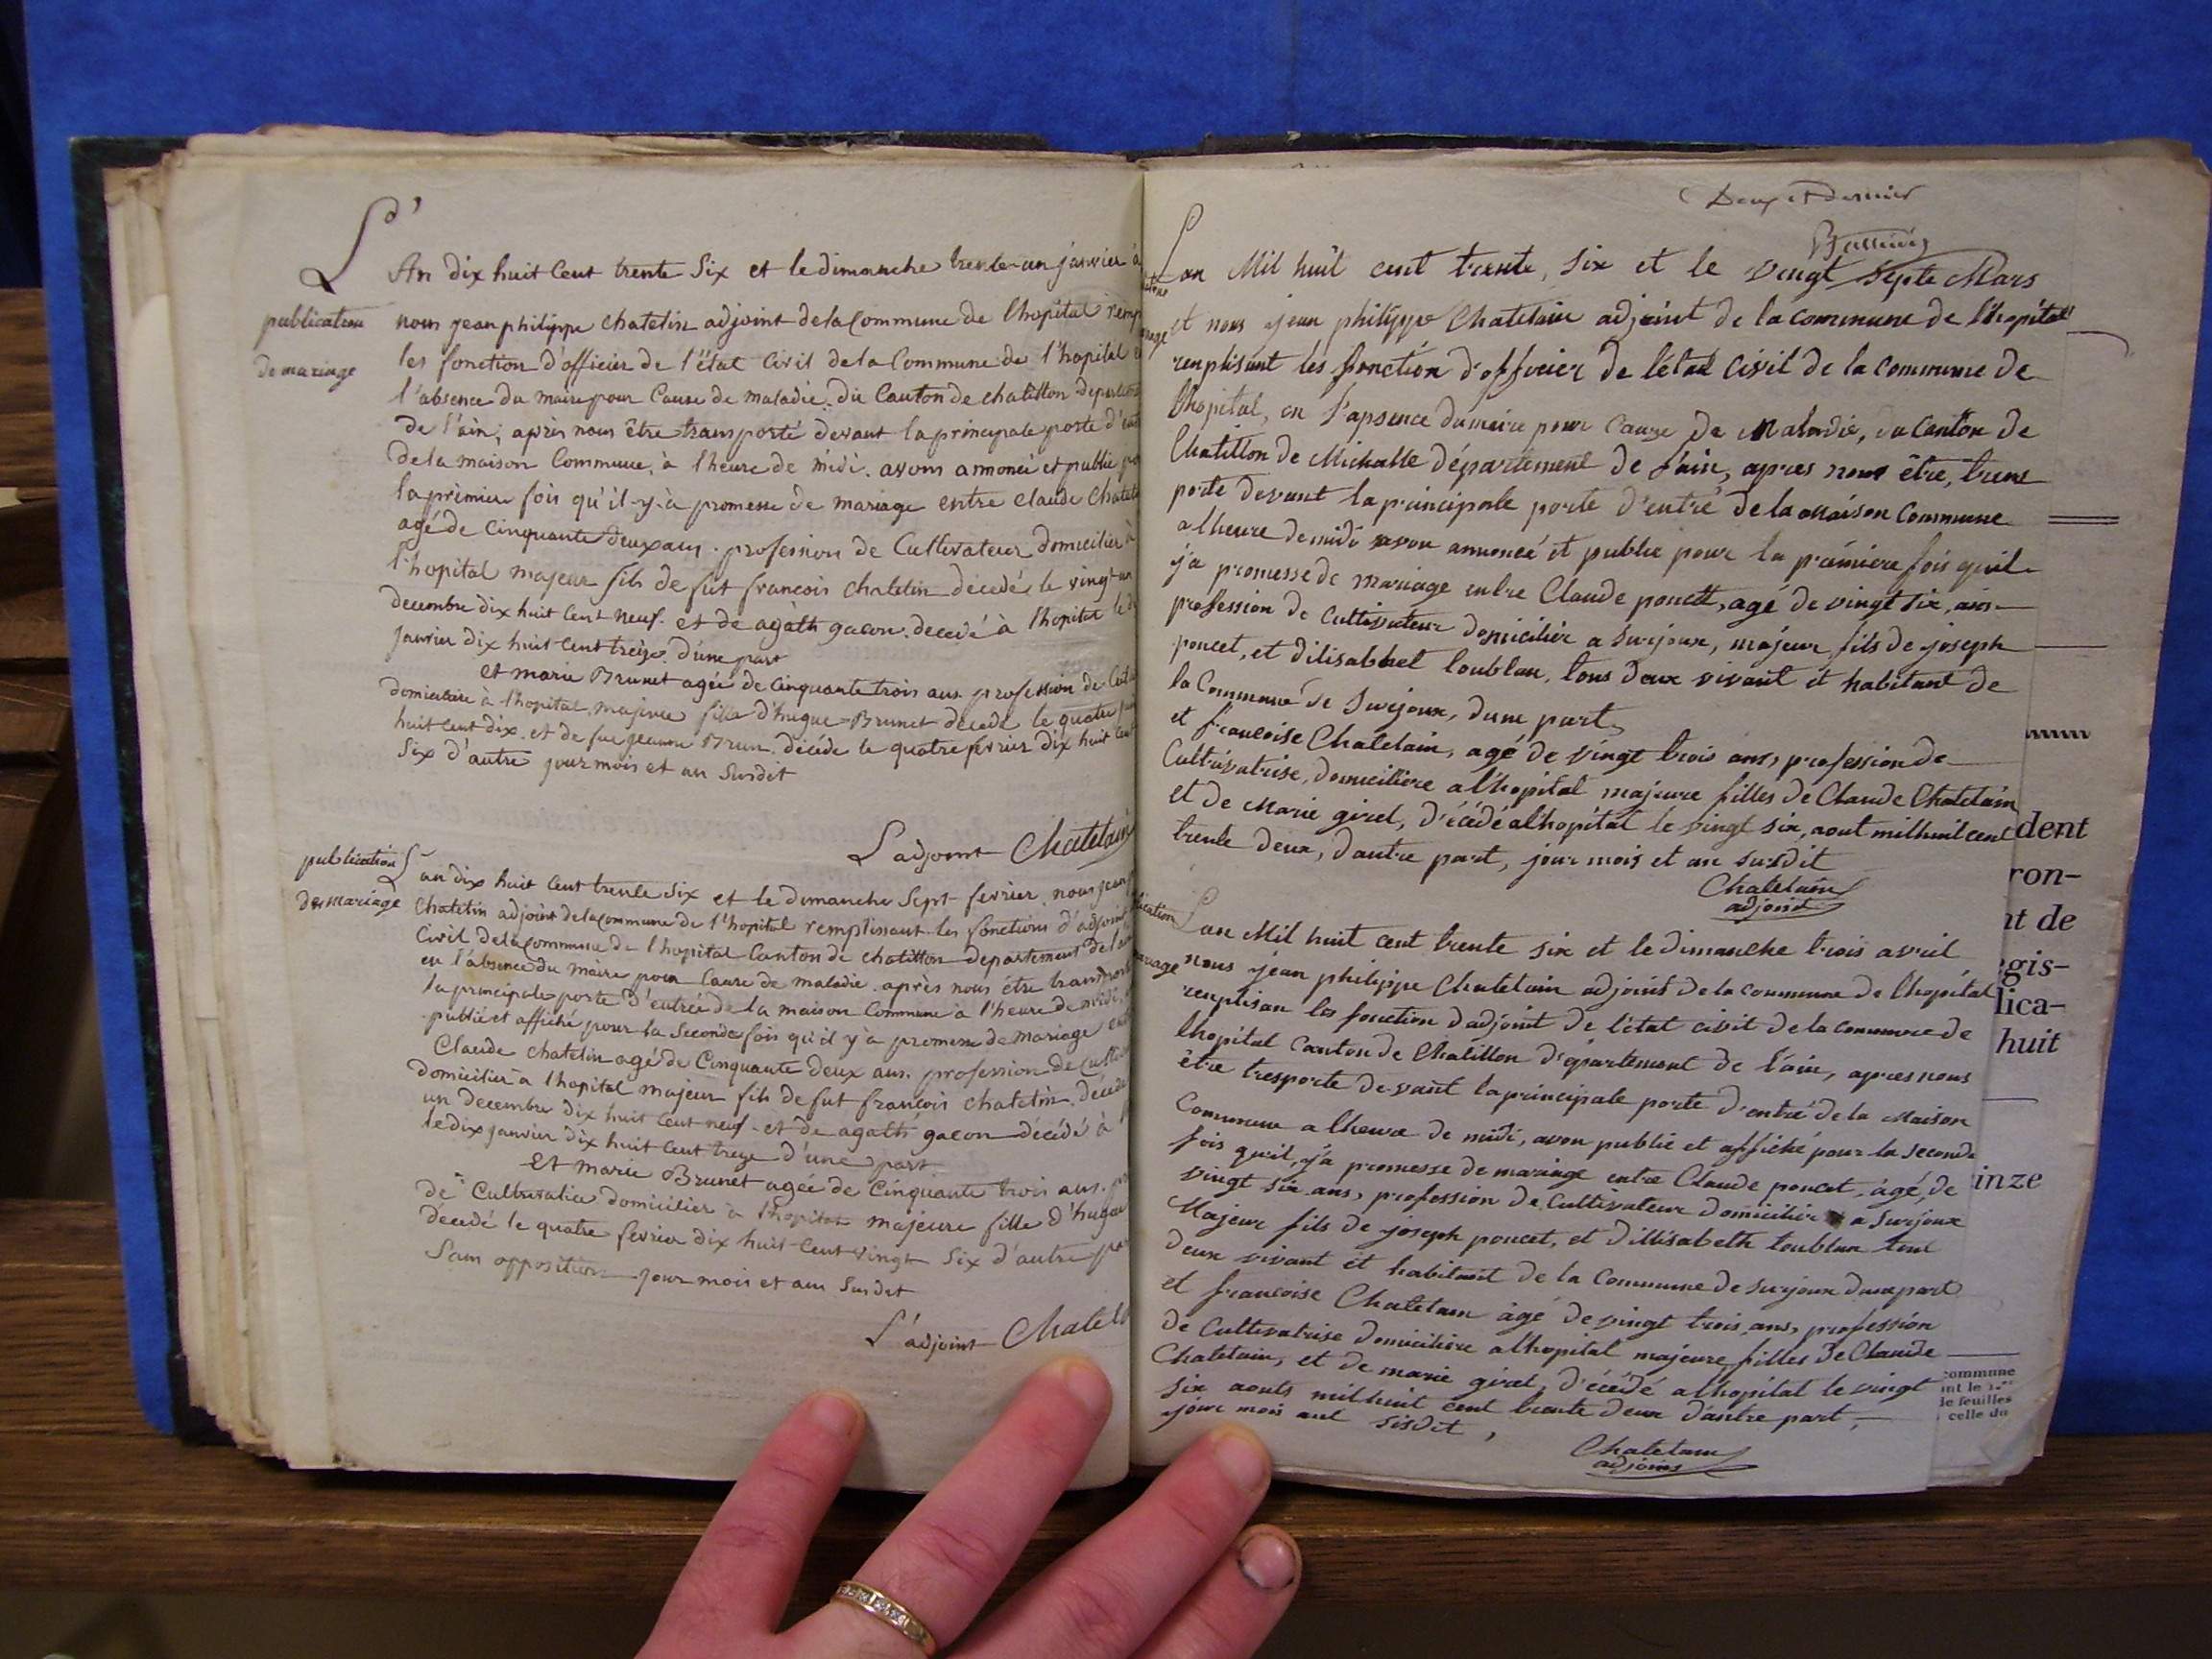 L'An dix huit Cent trente Six et le dimanche trente-un janvier à
publication
de mariage
nous jean philippe chatelin adjoint de la Commune de lhopital remp
les fonction d'officier de l'état Civil de la Commune de l'hopital e
l'absence du maire pour Cause de maladie. du Canton de chatillon departem
de l'ain, après nous être transporté devant la principale porte d'ent
de la maison Commune, à lheure de midi. avons annoncé et publié po
la première fois qu'il-y-à promesse de mariage entre Claude Chatel
agé de Cinquante deux ans. profession de Cultivateur domicilier à
l'hopital majeur fils de fut francois chatelin décedé, le vingt-un
decembre dix huit Cent neuf. et de agath gacon. decedé à l'hopital le d
janvier dix huit Cent treize. d'une part
et marie Brunet agée de Cinquante trois ans. profession de Culti
domiciliaire à l'hopital, majeure fille d'hugue Brunet decedé le quatre
huit Cent dix. et de fue jeanne Brun. décéde le quatre fevrier dix huit Cent
Six d'autre jour mois et an Susdit
L'adjoint Chatelain
publication
de mariage
L'an dix huit Cent trente Six et le dimanche Sept fevrier, nous jean
Chatelin adjoint de la Commune de l'hopital remplissant les fonctions d'adjoint
Civil de la Commune de l'hopital Canton de chatillon departement de l'ain
en l'absence du maire pour Cause de maladie. après nous être transporté
la principale porte d'entrée de la maison Commune à l'heure de midi,
publié et affiché pour la Seconde fois qu'il y à promesse de mariage ent
Claude chatelin agé de Cinquante deux ans. profession de Culti
domicilier à lhopital majeur fils de fut françois chatelin. décedé
un decembre dix huit Cent neuf. et de agath gacon décédé à l
le dix janvier dix huit Cent treize d'une part
Et marie Brunet agée de Cinquante trois ans.
de Cultivatrice domicilier à lhopital majeure fille d'hugue
décedé le quatre fevrier dix huit Cent vingt Six d'autre par
Sans opposition jour mois et an Susdit
L'adjoint Chatel
Deux et dernier
Lan Mil huit cent trente, six et le vingt septe Mars
et nous jean philippe Chatelain adjoint de la commune de lhopital
renplisant les fonction d'officier de létat civil de la commune de
lhopital, en l'apsence du maire pour Cauze de Maladie, du Canton de
Chatillon de Michalle département de l'ain, apres nous être, trens
porte devant la principale porte d'entré de la Maison Commune
a lheure de midi avon annoncé et publie pour la première fois quil
y'a promesse de mariage entre Claude poncet, agé de vingt six, ans
profession de Cultivateur domicilier a Surjoux, majeur fils de joseph
poncet, et d'ilisabhet loublan, tous deux vivant et habitant de
la Commune de Surjoux, dune part,
et francoise Chatelain, agé de vingt trois ans, profession de
Cultivatrise, domiciliere a lhopital majeure filles de Claude Chatelain
et de Marie girel, d'écédé a lhopital le vingt six, aout mil huit cent
trente deux, dautre part, jour mois et an susdit
Chatelain
adjoint
Lan Mil huit cent trente six et le dimanche trois avril
nous jean philippe Chatelain adjoint de la commune de lhopital
renplisan les fonction dadjoint de létat civit de la commune de
lhopital canton de Chatillon département de l'ain, apres nous
être tresporte devant la principale porte d'entré de la Maison
Commune a lheure de midi, avon publie et affiché pour la seconde
fois quil, y'a promesse de mariage entre Claude poncet, àgé, de
vingt six ans, profession de Cultivateur domicilier a Surjoux
Majeur fils de joseph poncet, et d'illisabeth loublan tout
deux vivant et habitant de la Commune de surjoux dune part
et francoise Chatelain âgé de vingt trois ans, profession
de Cultivatrise domiciliere a lhopital majeure filles de Claude
Chatelain, et de marie girel, d'écédé a lhopital le vingt
six aouts mil huit cent trente deux dautre part,
jour mois aut susdit,
Chatelain
adjoins
dent
ron-
nt de
gis-
lica-
huit
inze
commune
nt le
de feuilles
celle du